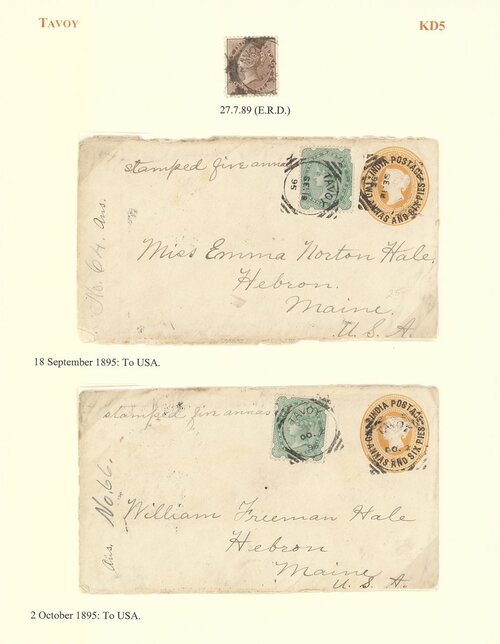 TAVOY
KD5
27.7.89 (E.R.D.)
stamped five annas
TAVOY
SE 18
95
INDIA POSTAGE
TWO ANNAS AND SIX PIES
No. 64. Ans.
Miss Emma Norton Hale,
Hebron.
Maine.
U. S. A.
18 September 1895: To USA.
stamped five annas
TAVOY
OC. 2
95
INDIA POSTAGE
TWO ANNAS AND SIX PIES
TAVOY
OC. 2
Ans. No. 66.
William Freeman Hale
Hebron
Maine
U. S. A.
2 October 1895: To USA.